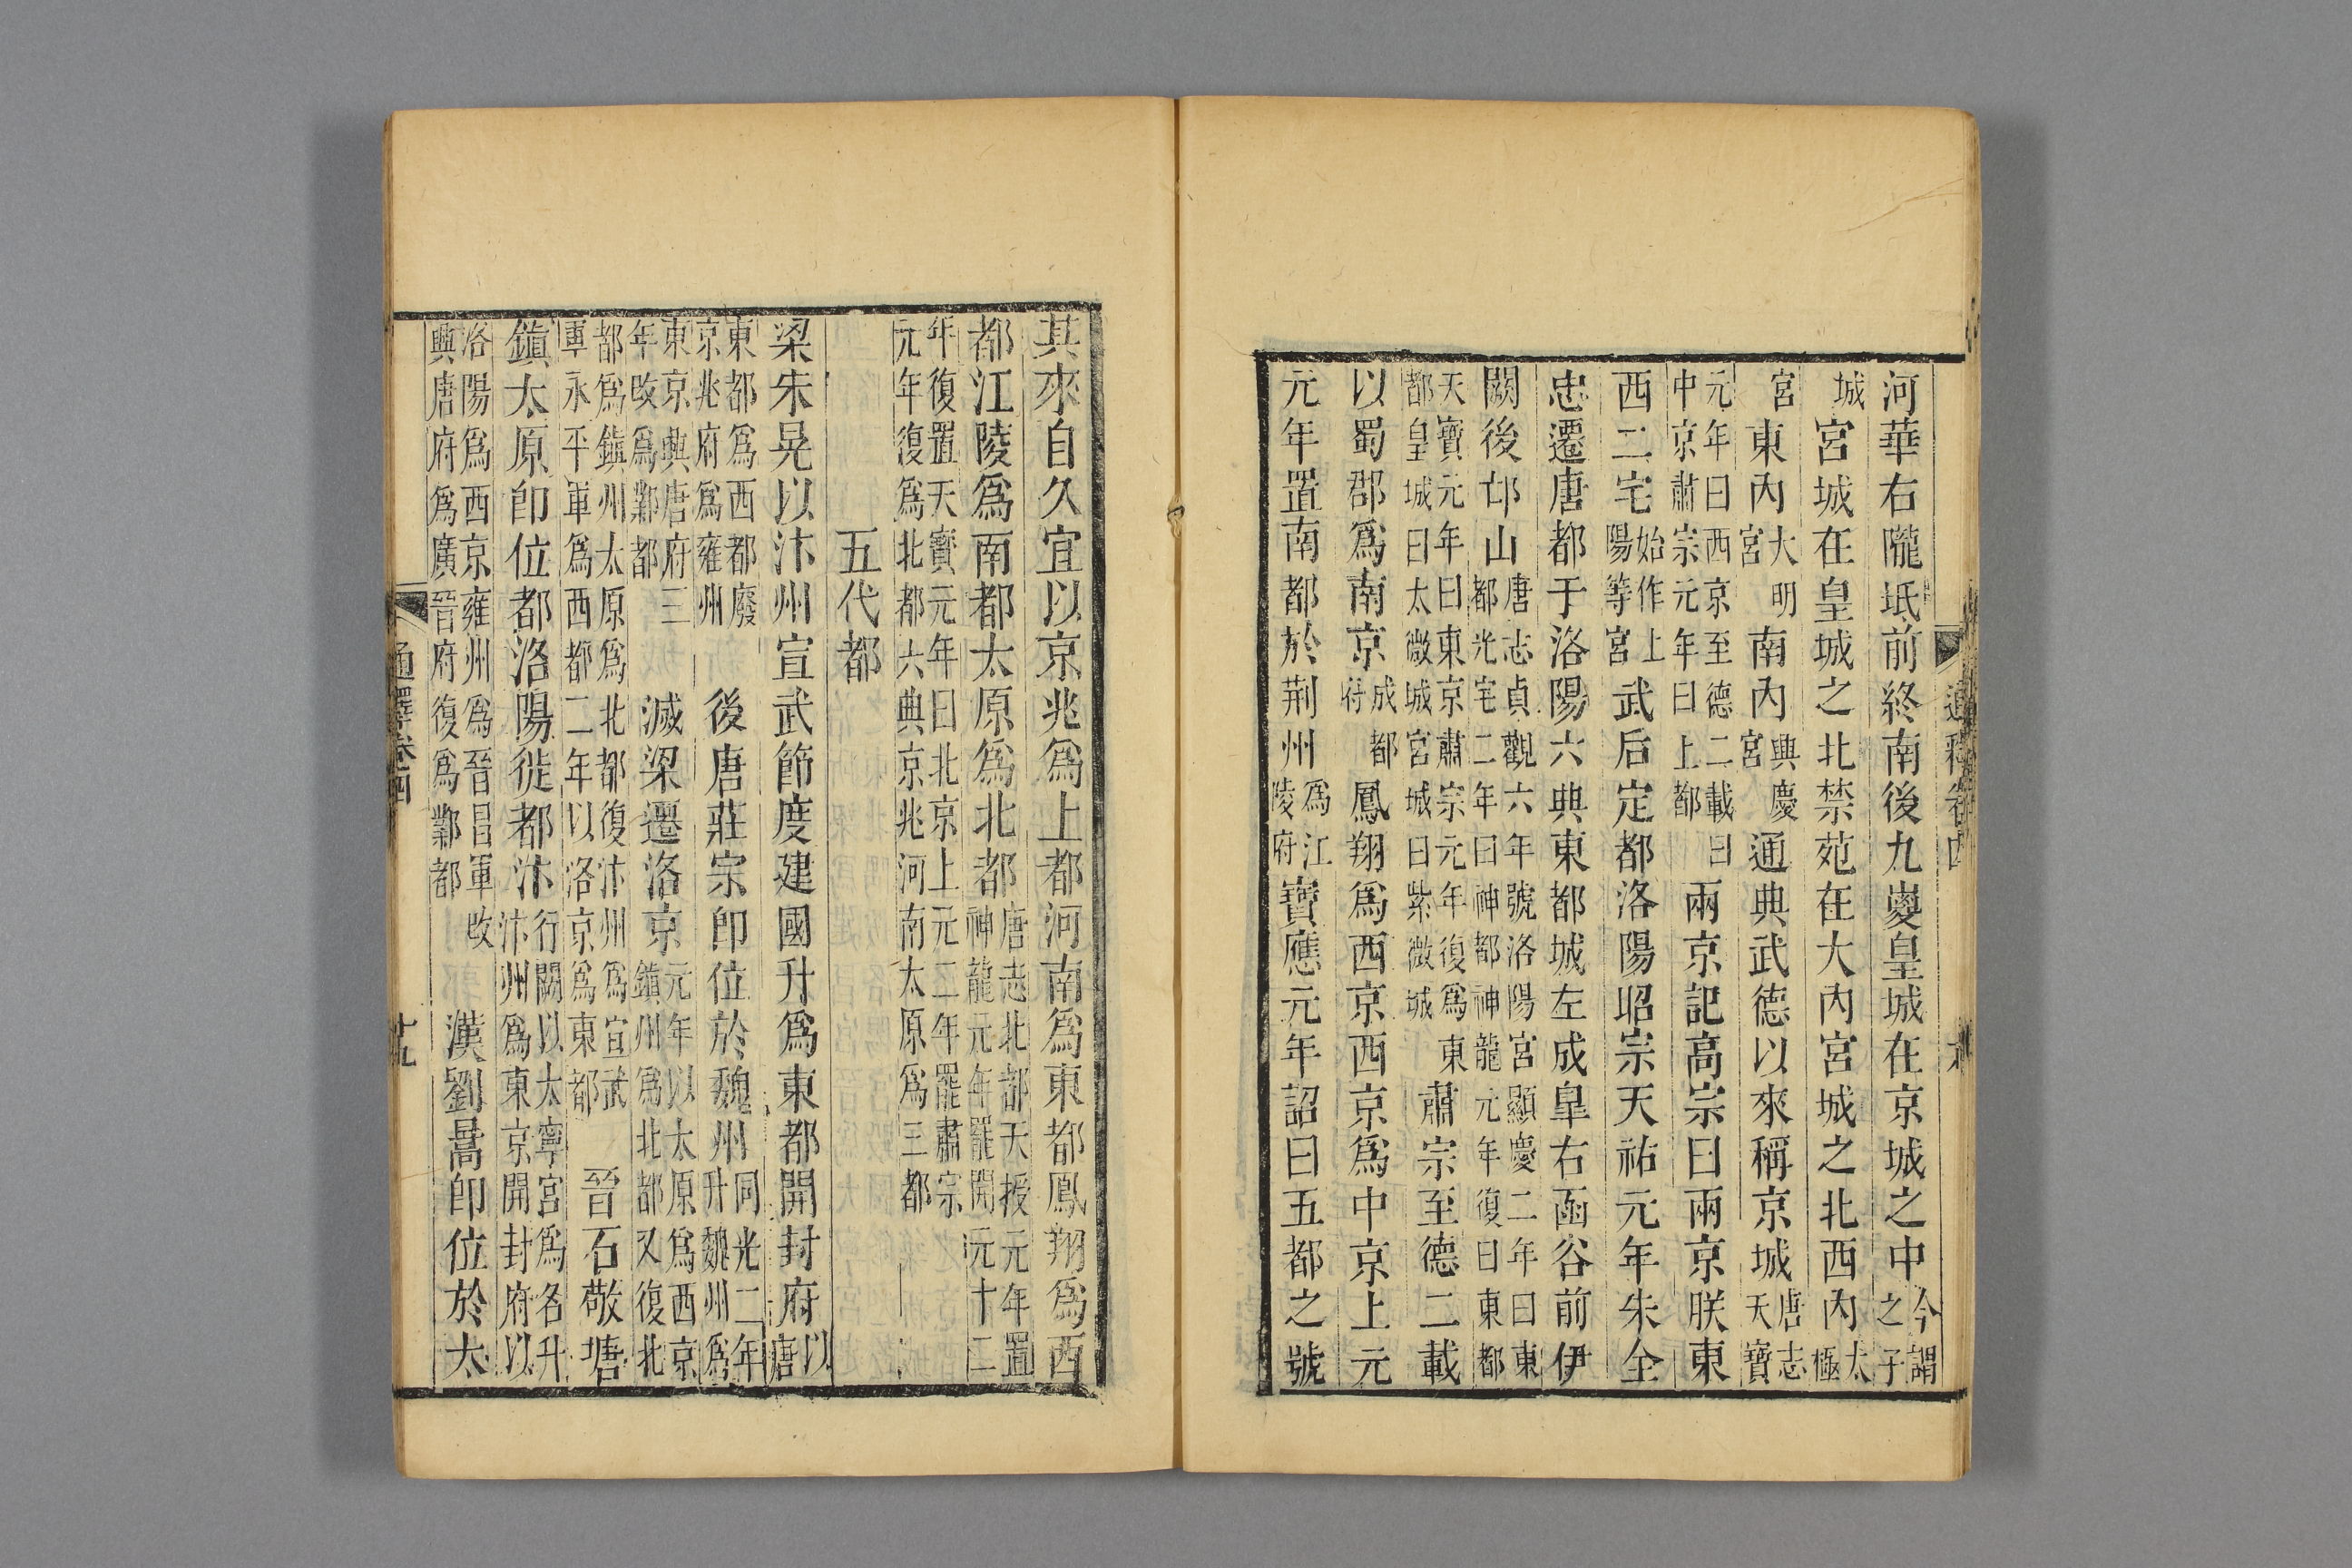 河華右隴坻前終南後九嵕皇城在京城之中今謂之子
城宮城在皇城之北禁苑在大內宮城之北西內太極
宮東內大明宮南內興慶宮通典武德以來稱京城唐志天寶
元年曰西京至德二載曰中京肅宗元年曰上都兩京記高宗曰兩京朕東
西二宅始作上陽等宮武后定都洛陽昭宗天祐元年朱全
忠遷唐都于洛陽六典東都城左成皐右函谷前伊
闕後邙山唐志貞觀六年號洛陽宮顯慶二年曰東都光宅二年曰神都神龍元年復曰東都
天寶元年曰東京肅宗元年復爲東都皇城曰太微城宮城曰紫微城肅宗至德二載
以蜀郡爲南京成都府鳳翔爲西京西京爲中京上元
元年置南都於荆州爲江陵府寶應元年詔曰五都之號
其來自久宜以京兆爲上都河南爲東都鳳翔爲西
都江陵爲南都太原爲北都唐志北都天授元年置神龍元年罷開元十二
年復置天寶元年曰北京上元二年罷肅宗元年復爲北都六典京兆河南太原爲三都
五代都
梁朱晃以汴州宣武節度建國升爲東都開封府以唐
東都爲西都廢京兆府爲雍州後唐莊宗即位於魏州同光二年升魏州爲
東京興唐府三年改爲鄴都滅梁遷洛京元年以太原爲西京鎮州爲北都又復北
都爲鎮州太原爲北都復汴州爲宣武軍永平軍爲西都二年以洛京爲東都晉石敬塘
鎮太原即位都洛陽徙都汴行闕以大寧宮爲名升汴州爲東京開封府以
洛陽爲西京雍州爲晉昌軍改興唐府爲廣晉府復爲鄴都漢劉暠即位於太
通釋卷四